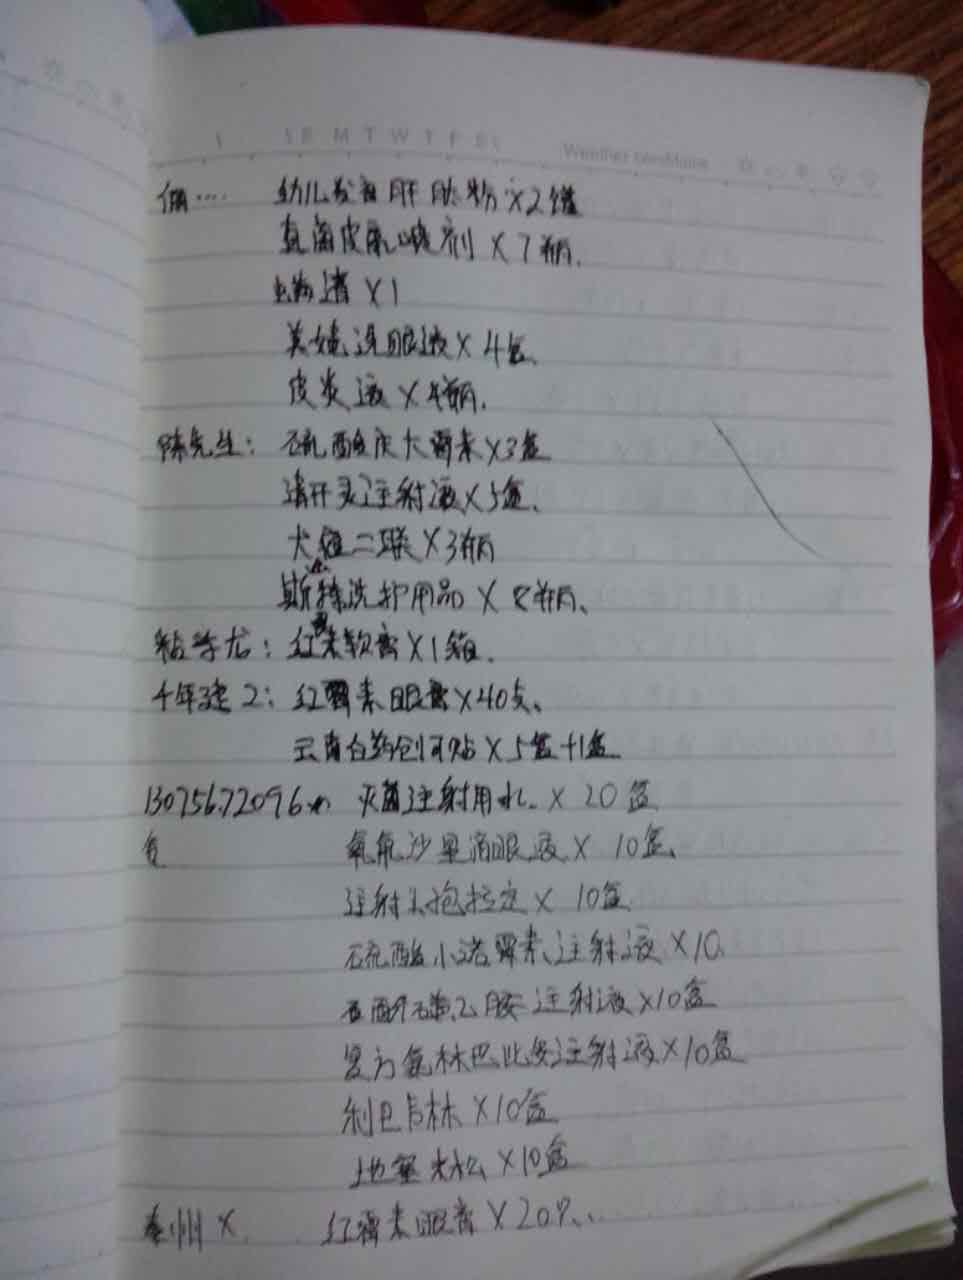 S M T W T F S
幼儿发育肝肽粉 X2罐
真菌皮肤喷剂 X7瓶.
X1
美婕洗眼液X4盒.
皮炎液X4瓶.
陈先生: 硫酸庆大霉素X3盒
清开灵注射液X5盒.
犬瘟二联X3瓶
斯特洗护用品X8瓶、
龙: 红霉素软膏X1箱.
千年建2: 红霉素眼膏X40支、
云南白药创可贴X5盒+1盒
13075672096 灭菌注射用水. X 20盒
氧氟沙星滴眼液X 10盒、
注射头孢拉定X 10盒
硫酸小诺霉素注射液X10.
酚磺乙胺注射液X10盒
复方氨林巴比妥注射液X10盒
利巴韦林X10盒
地塞米松X10盒
泰州X 红霉素眼膏X20